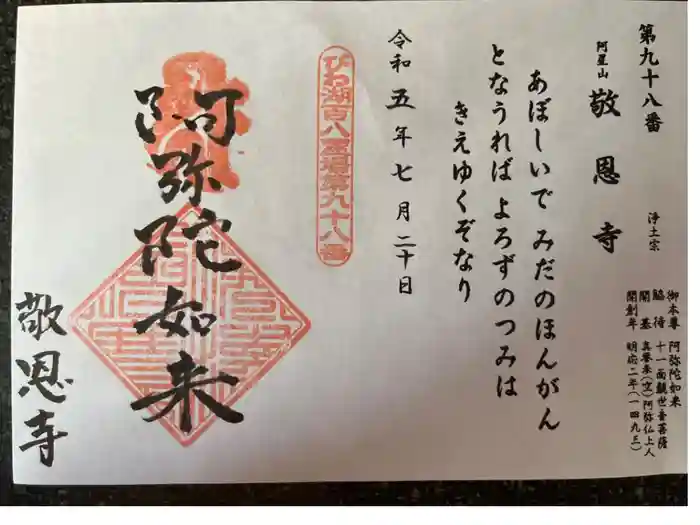 第九十八番
阿星山 敬恩寺
浄土宗
御本尊 阿弥陀如来
脇侍 十一面観世音菩薩
開基 真誉来(空)阿弥仏上人
開創年 明応二年(一四九三)
あぼしいで みだのほんがん
となうれば よろずのつみは
きえゆくぞなり
令和五年七月二十日
びわ湖百八霊場第九十八番
阿弥陀如来
敬恩寺